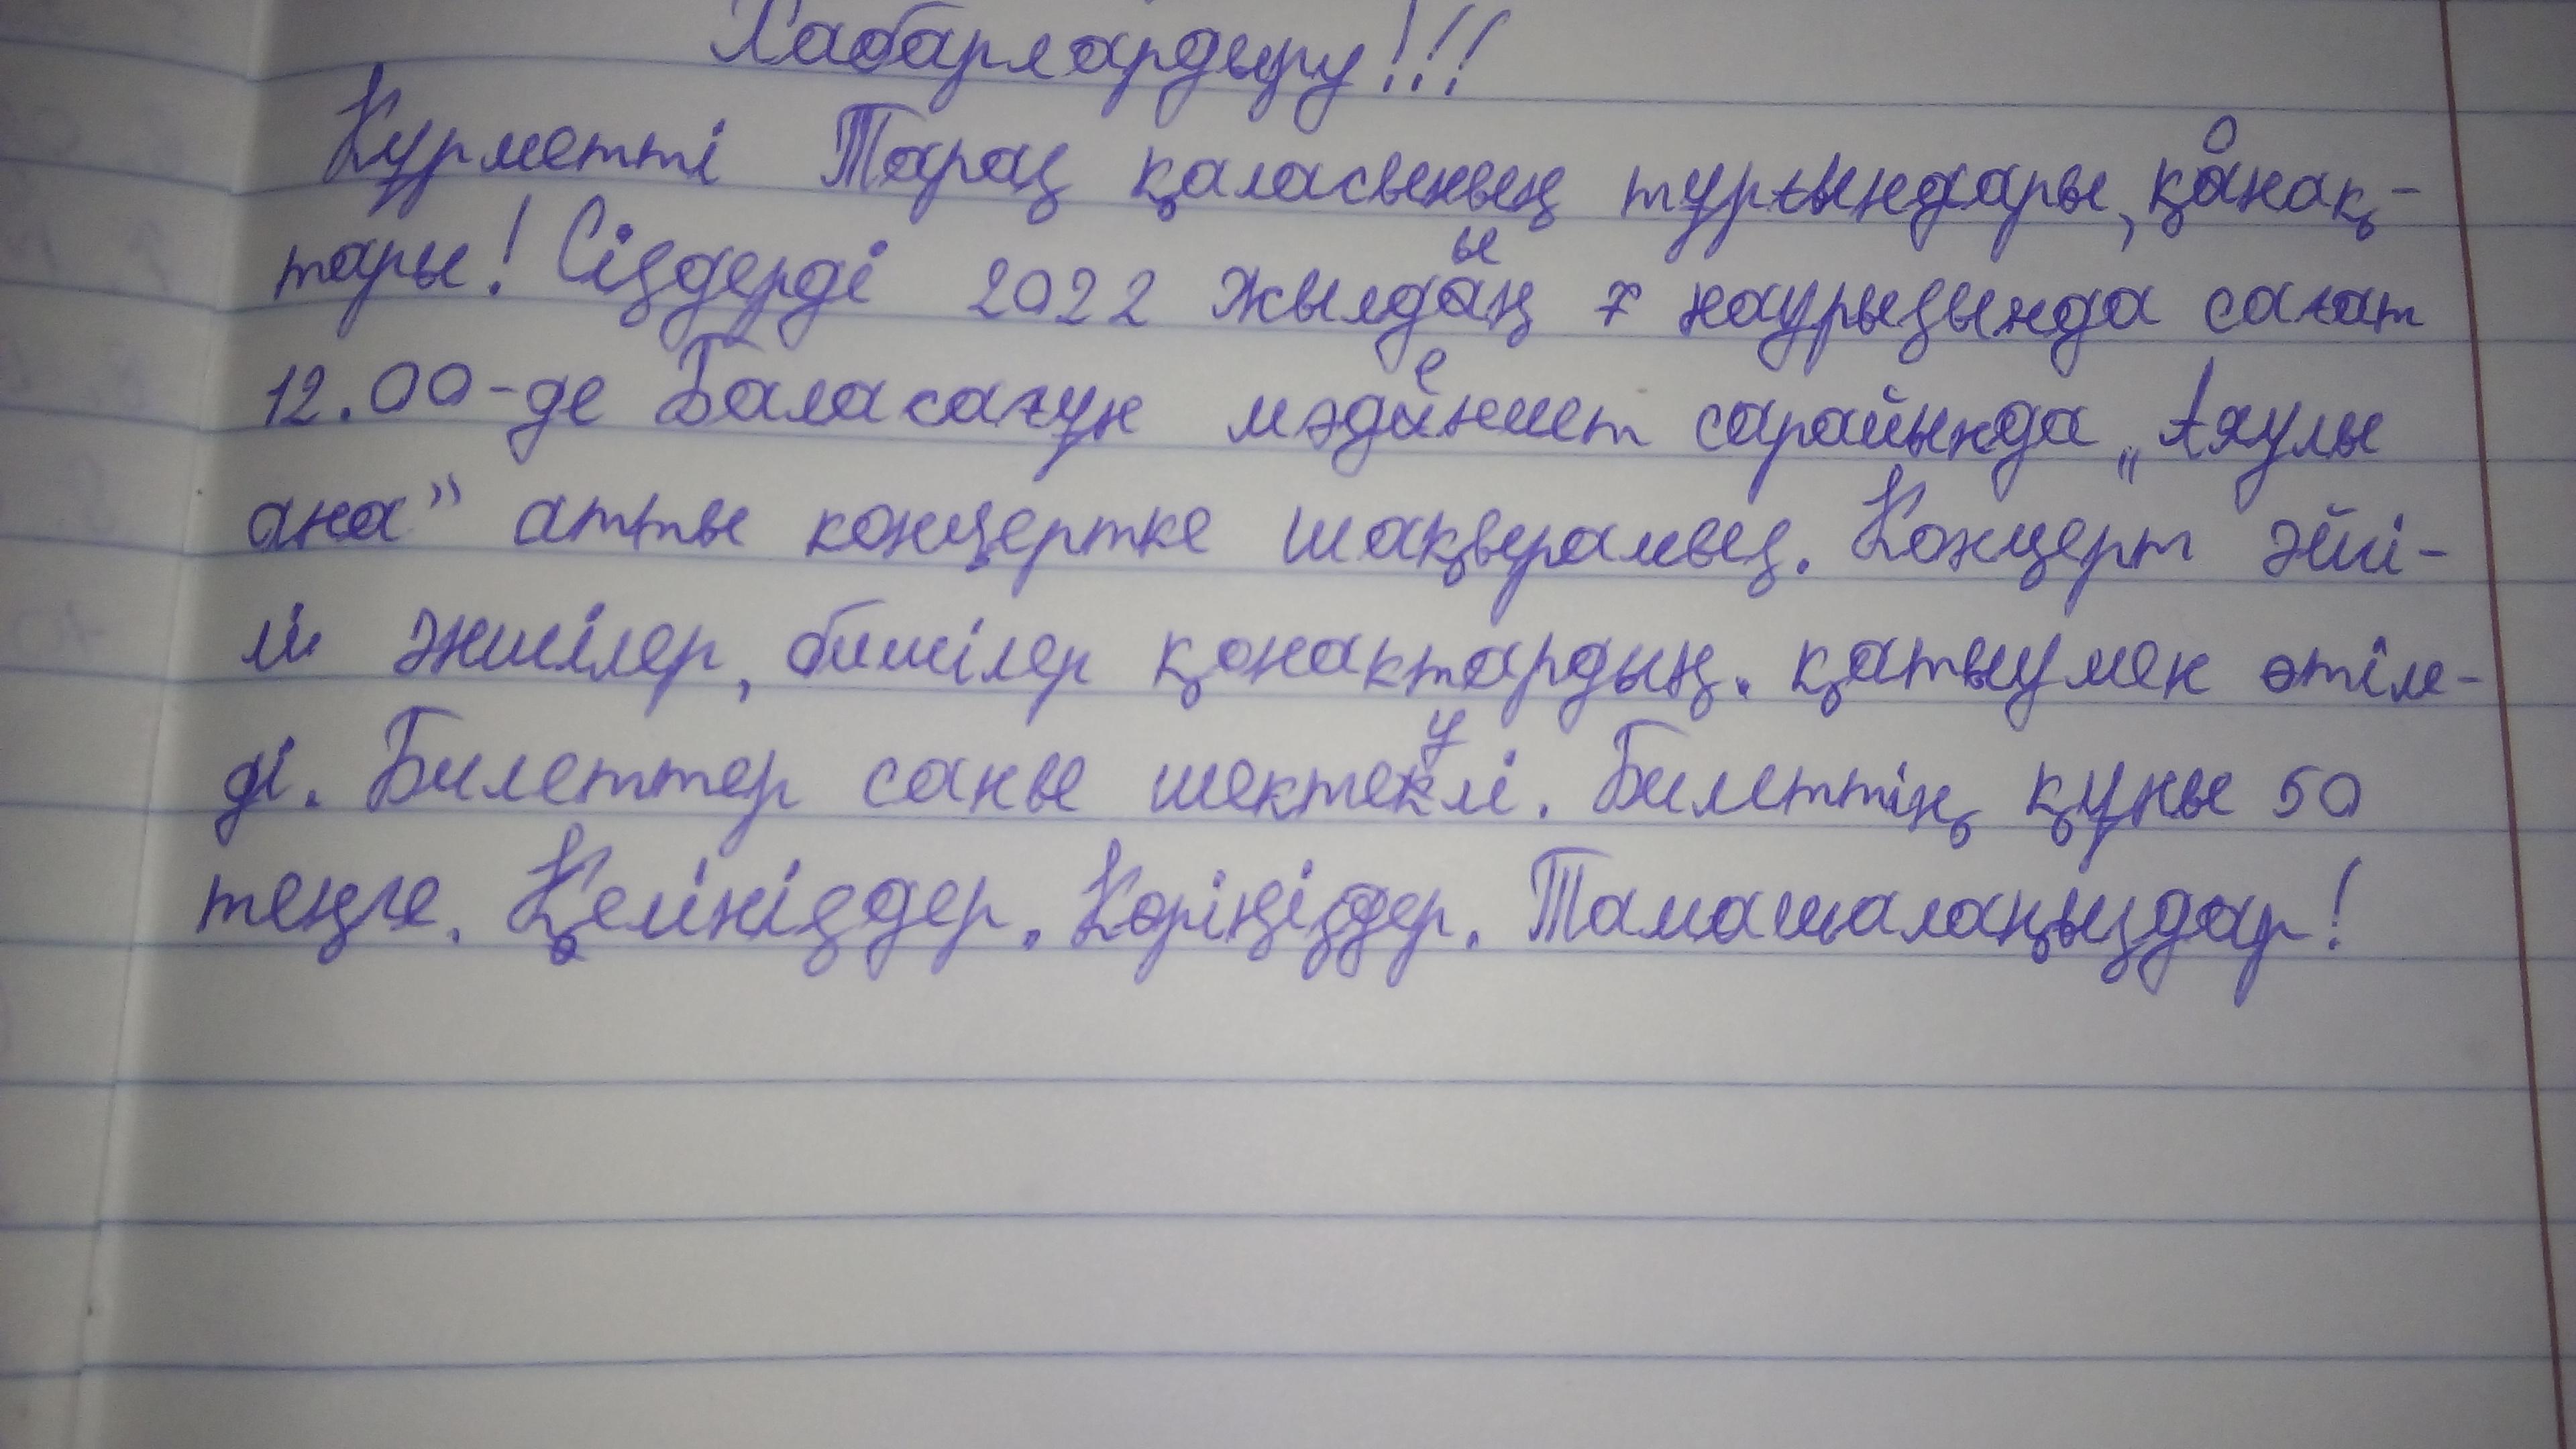 Хабарлардыру!!!
Құрметті Тараз қаласының тұрғындары, қонақ-
тары! Сіздерді 2022 жылдың 7 наурызында сағат
12.00-де Баласағұн мәдениет сарайында „Аяулы
ана” атты концертке шақырамыз. Концерт әйгі-
лі әншілер, бишілер қонактардың. қатыумен өтіле-
ді. Билеттер саны шектеулі. Билеттің құны 50
теңге. Келініздер. Көріңіздер. Тамашалаңыздар!